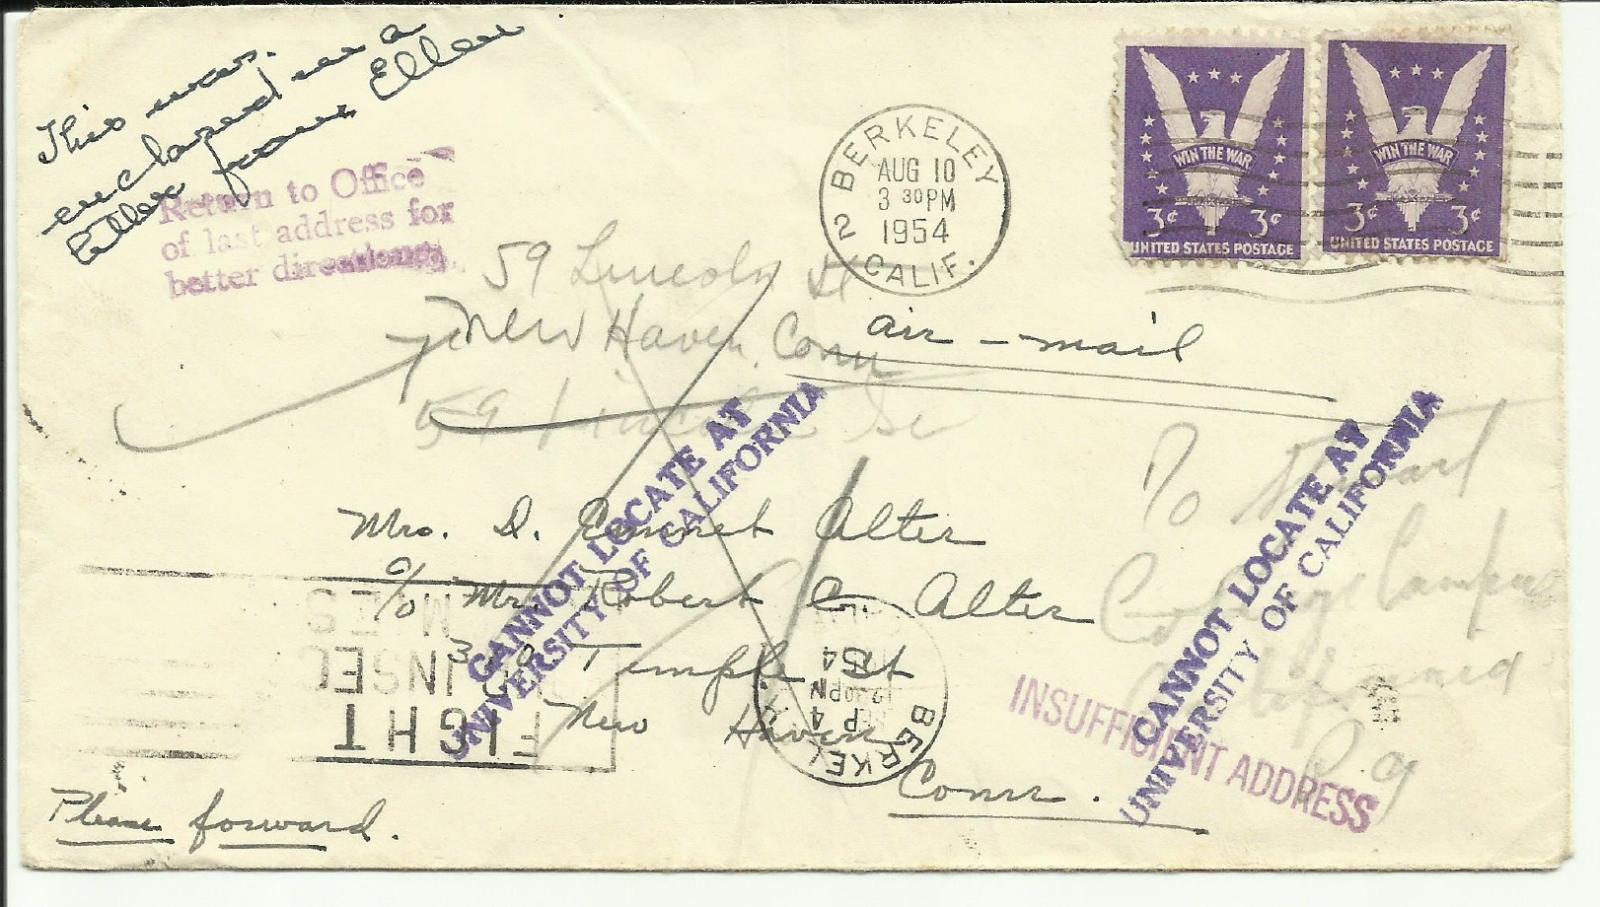 This was.
enclosed in a
letter from Ellen
Return to Office
of last address for
better directions
BERKELEY
AUG 10
3 30 PM
1954
2 CALIF.
WIN THE WAR
3¢ 3¢
UNITED STATES POSTAGE
WIN THE WAR
3¢ 3¢
UNITED STATES POSTAGE
59 Lincoln St
New Haven, Conn
air-mail
59 Lincoln St
CANNOT LOCATE AT
UNIVERSITY OF CALIFORNIA
CANNOT LOCATE AT
UNIVERSITY OF CALIFORNIA
Mrs. D. Emmet Alter
c/o Mr. Robert C. Alter
Temple St
New Haven
Conn.
c/o Stewart
College Campus
INSUFFICIENT ADDRESS
FIGHT
INSEC
MES
BERKEL
SEP 4
PM
54
Please forward.